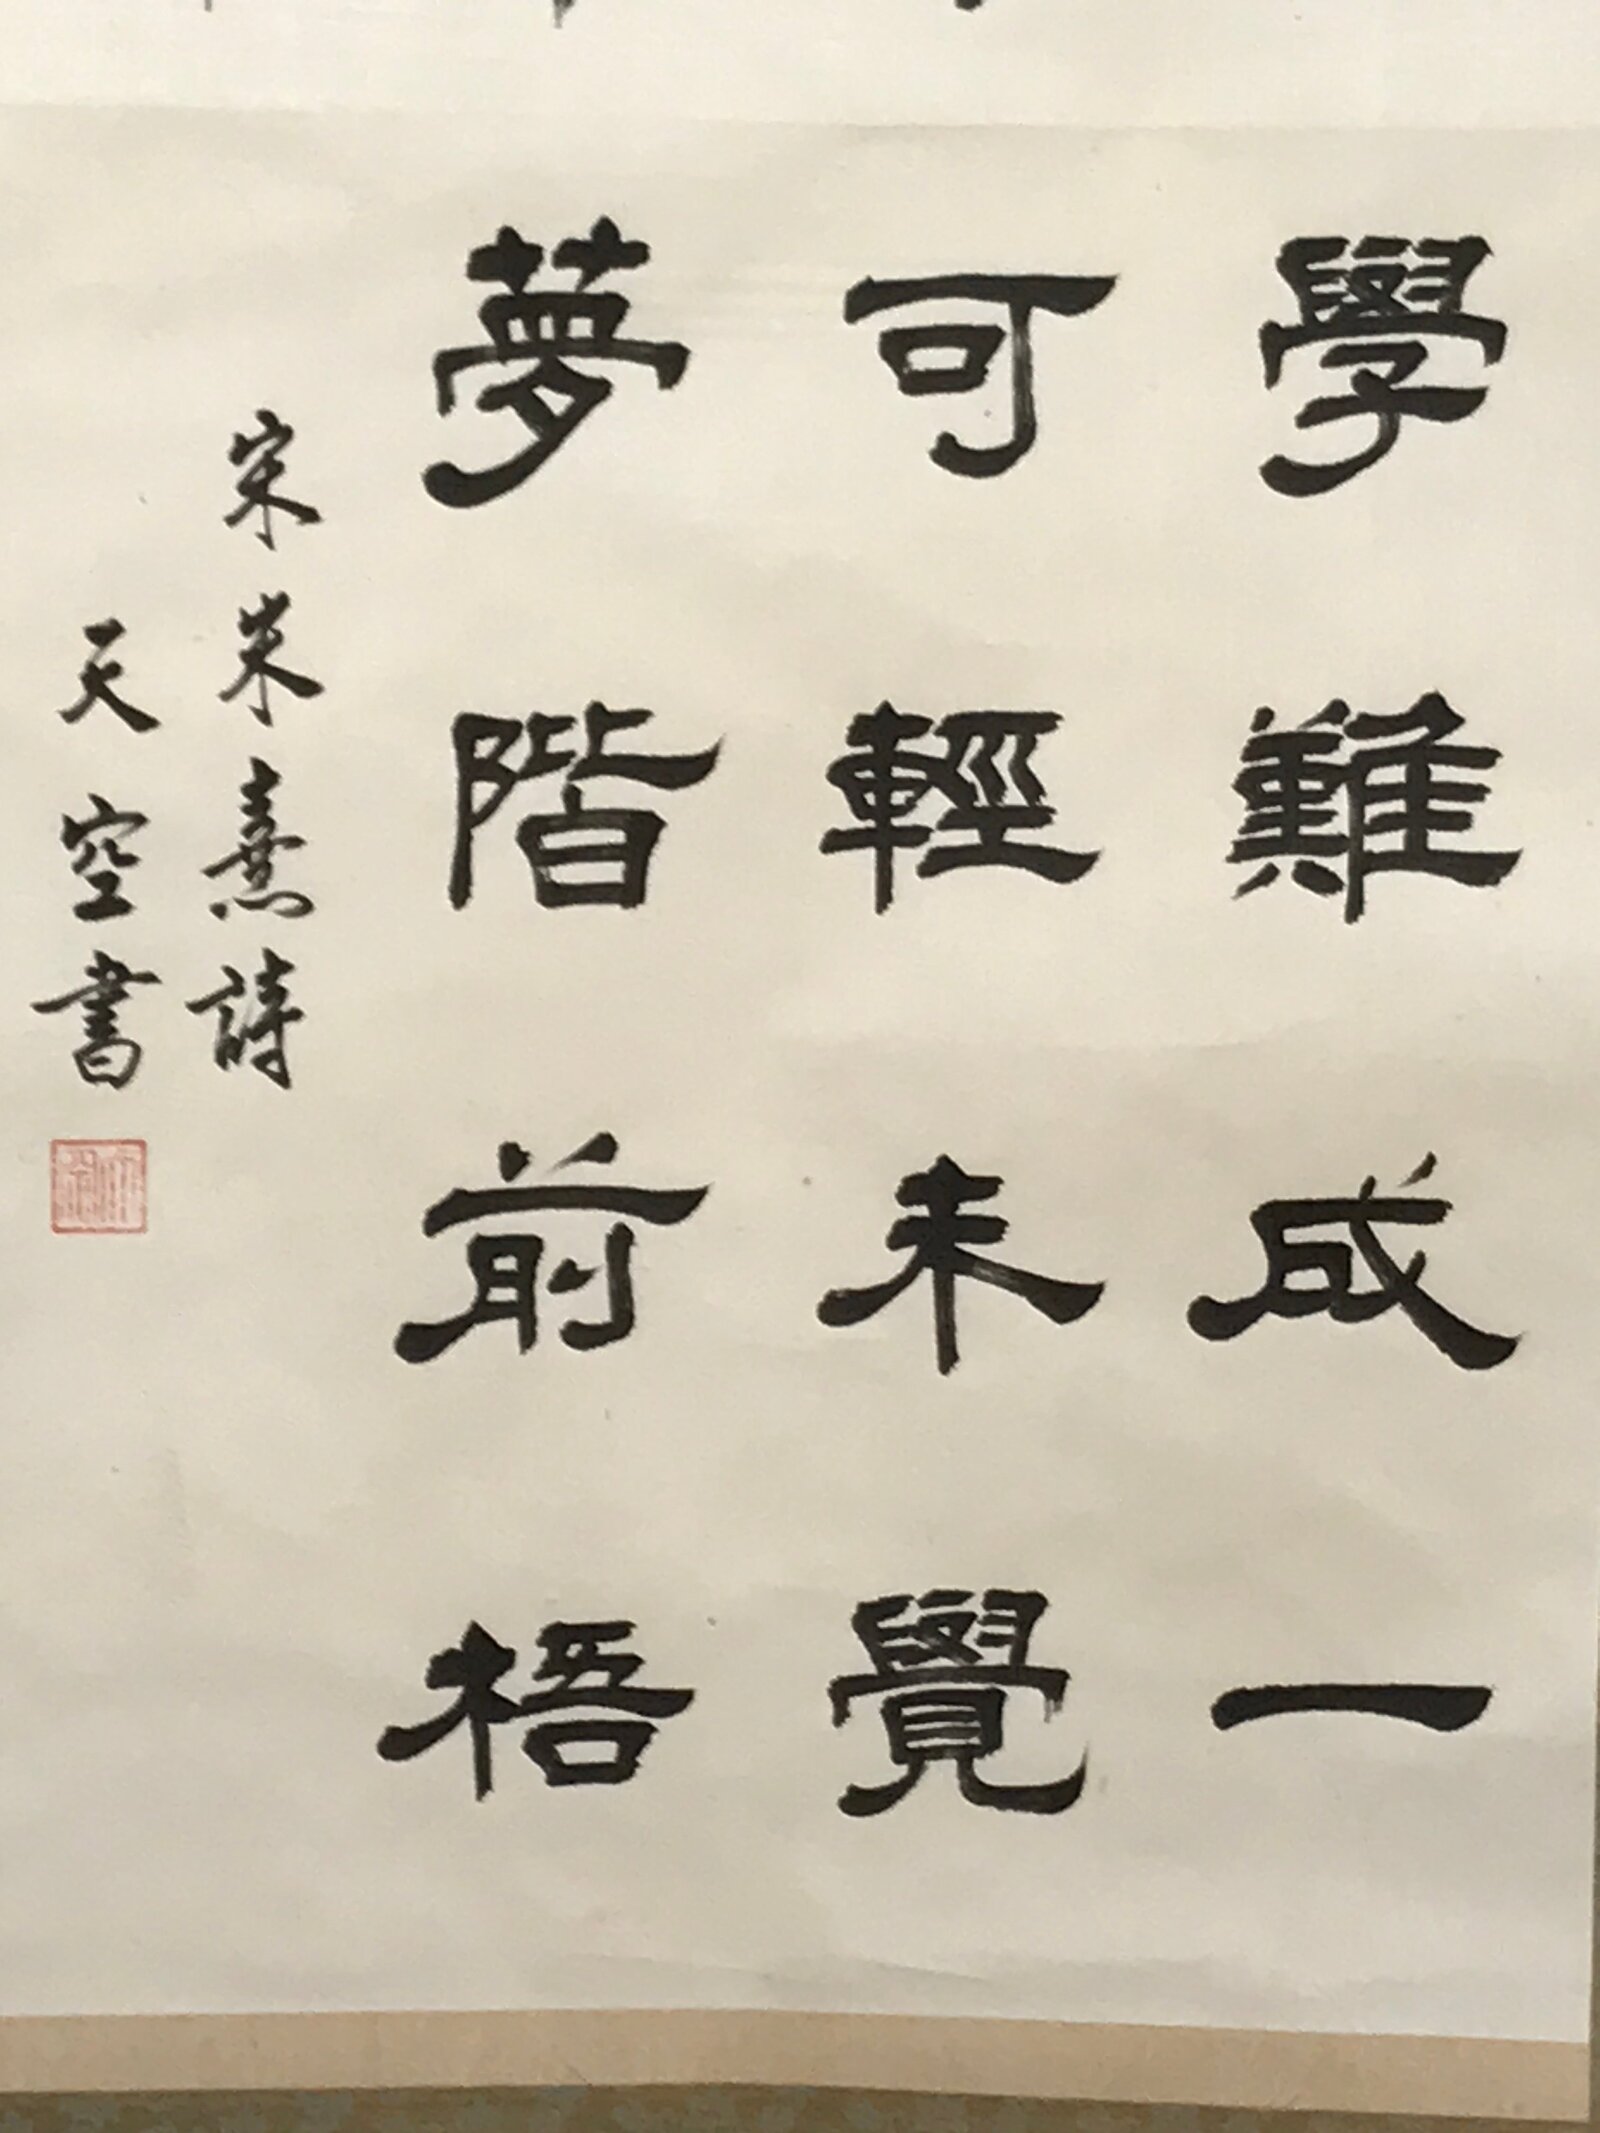 學難成一
可輕未覺
夢階前梧
宋朱熹詩
天空書